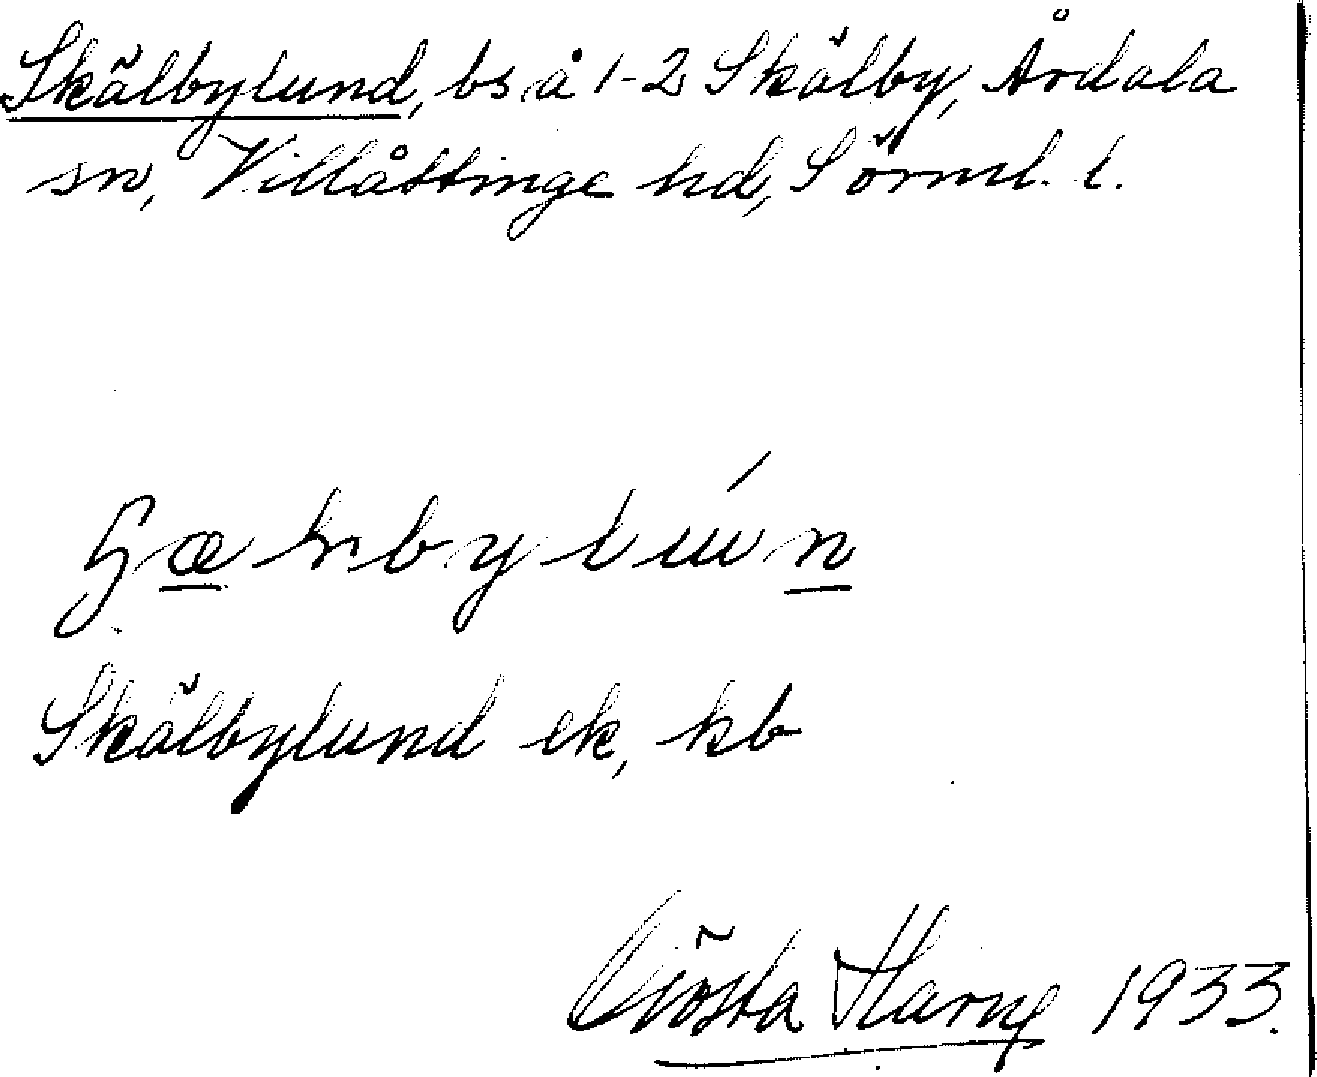 Skälbylund, bs å 1-2 Skälby, Årdala
sn, Villåttinge hd, Sörml. l.
Skälbylund ek, kb
Gösta Harng 1933.